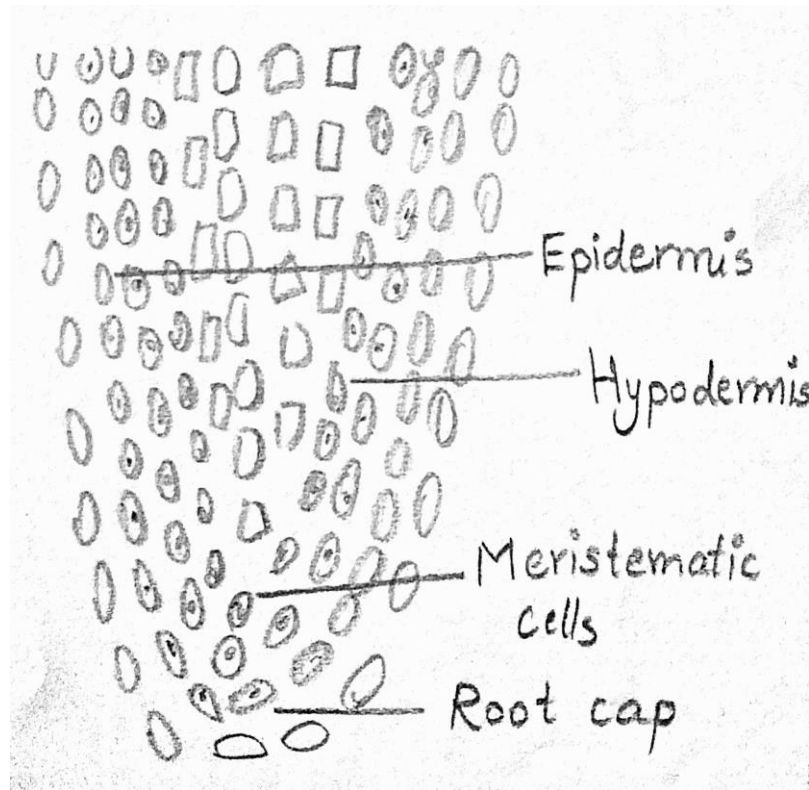 Epidermis
Hypodermis
Meristematic
cells
Root cap